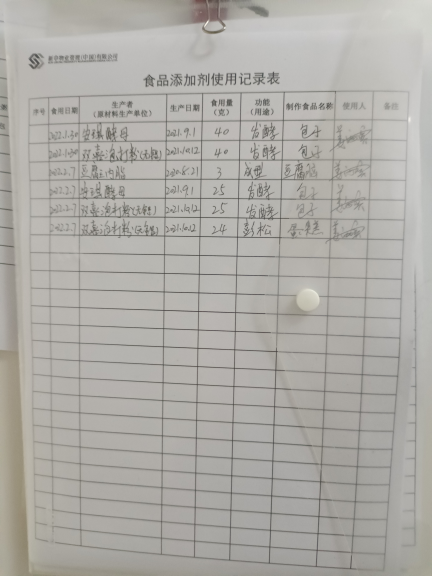 食品添加剂使用记录表
序号 食用日期 生产者（原材料生产单位） 生产日期 食用量（克） 功能（用途） 制作食品名称 使用人 备注
2022.1.30 安琪酵母 2021.9.1 40 发酵 包子
2022.1.30 双喜泡打粉(无铝) 2021.10.12 40 发酵 包子
2022.2.7 豆腐王内脂 2020.8.21 3 成型
2022.2.7 安琪酵母 2021.9.1 25 发酵 包子
2022.2.7 双喜泡打粉(无铝) 2021.10.12 25 发酵 包子
2022.2.7 双喜泡打粉(无铝) 2021.10.12 24 彭松 蛋糕